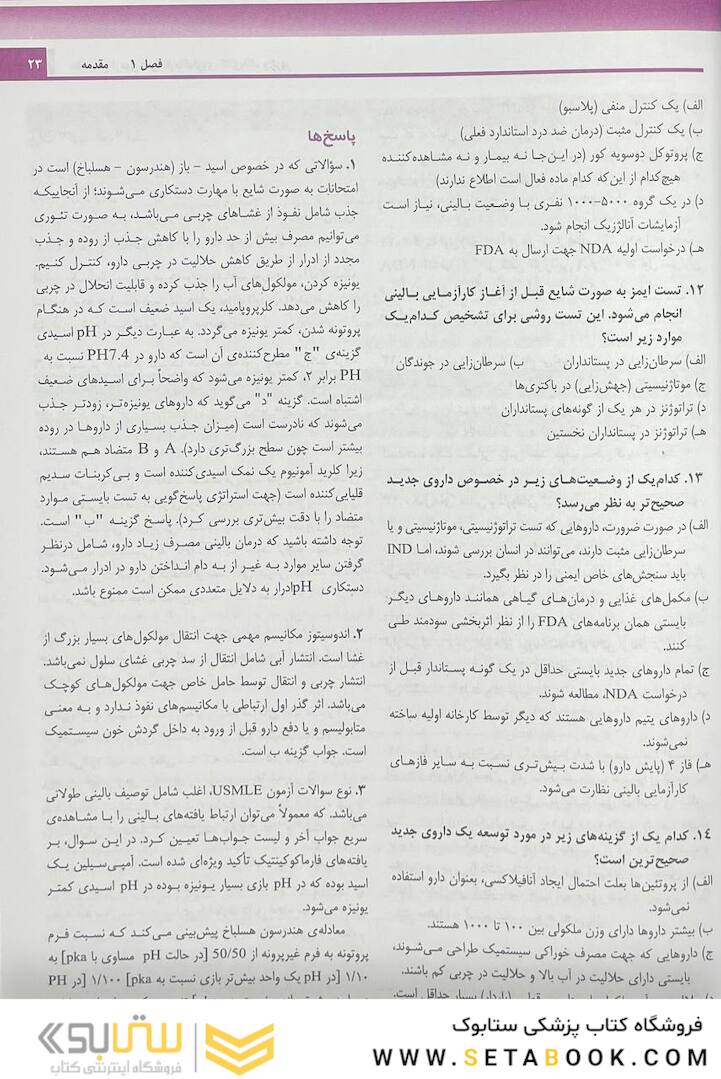 ۲۳ فصل ۱ مقدمه
الف) یک کنترل منفی (پلاسبو)
ب) یک کنترل مثبت (درمان ضد درد استاندارد فعلی)
ج) پروتوکل دوسویه کور (در این‌جا نه بیمار و نه مشاهده‌کننده
هیچ‌کدام از این‌که کدام ماده فعال است اطلاع ندارند)
د) در یک گروه ۵۰۰۰-۱۰۰۰ نفری با وضعیت بالینی، نیاز است
آزمایشات آنالژزیک انجام شود.
هـ) درخواست اولیه NDA جهت ارسال به FDA
۱۲. تست ایمز به صورت شایع قبل از آغاز کارآزمایی بالینی
انجام می‌شود. این تست روشی برای تشخیص کدام‌یک
موارد زیر است؟
الف) سرطان‌زایی در پستانداران ب) سرطان‌زایی در جوندگان
ج) موتاژنیسیتی (جهش‌زایی) در باکتری‌ها
د) تراتوژنز در هر یک از گونه‌های پستانداران
هـ) تراتوژنز در پستانداران نخستین
۱۳. کدام‌یک از وضعیت‌های زیر در خصوص داروی جدید
صحیح‌تر به نظر می‌رسد؟
الف) در صورت ضرورت، داروهایی که تست تراتوژنیسیتی، موتاژنیسیتی و یا
سرطان‌زایی مثبت دارند، می‌توانند در انسان بررسی شوند، اما IND
باید سنجش‌های خاص ایمنی را در نظر بگیرد.
ب) مکمل‌های غذایی و درمان‌های گیاهی هماننـد داروهای دیگـر
بایستی همان برنامه‌های FDA را از نظر اثربخشی سودمند طـی
کنند.
ج) تمام داروهای جدید بایستی حداقل در یک گونه پستاندار قبل از
درخواست NDA، مطالعه شوند.
د) داروهای یتیم داروهایی هستند که دیگر توسط کارخانه اولیه ساخته
نمی‌شوند.
هـ) فاز ۴ (پایش دارو) با شدت بیش‌تری نسبت به سایر فازهای
کارآزمایی بالینی نظارت می‌شود.
۱۴. کدام یک از گزینه‌های زیر در مورد توسعه یک داروی جدید
صحیح‌ترین است؟
الف) از پروتئین‌ها بعلت احتمال ایجاد آنافیلاکسی، بعنوان دارو استفاده
نمی‌شود.
ب) بیشتر داروها دارای وزن ملکولی بین ۱۰۰ تا ۱۰۰۰ هستند.
ج) داروهایی که جهت مصرف خوراکی سیستمیک طراحی می‌شوند،
بایستی دارای حلالیت در آب بالا و حلالیت در چربی کم باشند.
بسیار حداقل است.
پاسخ‌ها
۱. سؤالاتی که در خصوص اسید – باز (هندرسون – هسلباخ) است در
امتحانات به صورت شایع با مهارت دستکاری می‌شوند؛ از آنجاییکه
جذب شامل نفوذ از غشاهای چربی مـی‌باشـد، به صورت تئوری
می‌توانیم مصرف بیش از حد دارو را با کاهش جـذب از روده و جـذب
مجدد از ادرار از طریق کاهش حلالیت در چربی دارو، کنترل کنیـم.
یونیزه کردن، مولکول‌های آب را جذب کرده و قابلیت انحلال در چربی
را کاهش می‌دهد. کلرپروپامید، یک اسید ضعیف اسـت کـه در هنگـام
پروتونه شدن، کمتر یونیزه می‌گردد. به عبارت دیگـر در pH اسیدی
گزینه‌ی "ج" مطرح‌کننده‌ی آن است که دارو در PH7.4 نسبت به
PH برابر ۲، کمتر یونیزه می‌شود که واضحاً بـرای اسیدهای ضعیـف
اشتباه است. گزینه "د" می‌گوید که داروهای یونیزه‌تـر، زودتـر جـذب
می‌شوند که نادرست است (میزان جذب بسیاری از داروهـا در روده
بیشتر است چون سطح بزرگ‌تری دارد). A و B متضاد هـم هستنـد،
زیرا کلرید آمونیوم یک نمک اسیدی‌کننده است و بی‌کربنات سدیم
قلیایی‌کننده است (جهت استراتژی پاسخ‌گویی به تست بایستی موارد
متضاد را با دقت بیش‌تری بررسی کـرد). پاسـخ گزینـه "ب" اسـت.
توجه داشته باشید که درمان بالینی مصرف زیاد دارو، شامل درنظر
گرفتن سایر موارد بـه غیـر از بـه دام انـداختن دارو در ادرار مـی‌شـود.
دستکاری pHادرار به دلایل متعددی ممکن است ممنوع باشد.
۲. اندوسیتوز مکانیسم مهمی جهت انتقال مولکول‌های بسیار بزرگ از
غشا است. انتشار آبی شامل انتقال از سد چربی غشای سلول نمی‌باشد.
انتشار چربی و انتقال توسط حامل خاص جهت مولکول‌هـای کوچـک
می‌باشد. اثر گذر اول ارتباطی با مکانیسم‌های نفوذ نـدارد و بـه معنـی
متابولیسم و یا دفع دارو قبل از ورود به داخل گردش خون سیستمیـک
است. جواب گزینه ب است.
۳. نوع سوالات آزمون USMLE، اغلب شامل توصیف بالینی طولانی
می‌باشد. که معمولاً می‌توان ارتباط یافته‌های بالینی را با مشاهده‌ی
سریع جواب آخر و لیست جواب‌هـا تعییـن کـرد. در ایـن سـوال، بـر
یافته‌های فارماکوکینتیک تأکید ویژه‌ای شده است. آمپی‌سیلین یـک
اسید بوده که در pH بازی بسیار یـونیزه بـوده در pH اسیدی کمتـر
یونیزه می‌شود.
معادله‌ی هندرسون هسلباخ پیش‌بینی می‌کنـد کـه نسبت فـرم
پروتونه به فرم غیرپرونه از 50/50 [در حالت pH مساوی با pka] به
۱/۱۰ [در pH یک واحد بیش‌تر بازی نسبت به pka] ۱/۱۰۰ [در PH
فروشگاه کتاب پزشکی ستابوک
WWW.SETABOOK.COM
ستابوک
فروشگاه اینترنتی کتاب